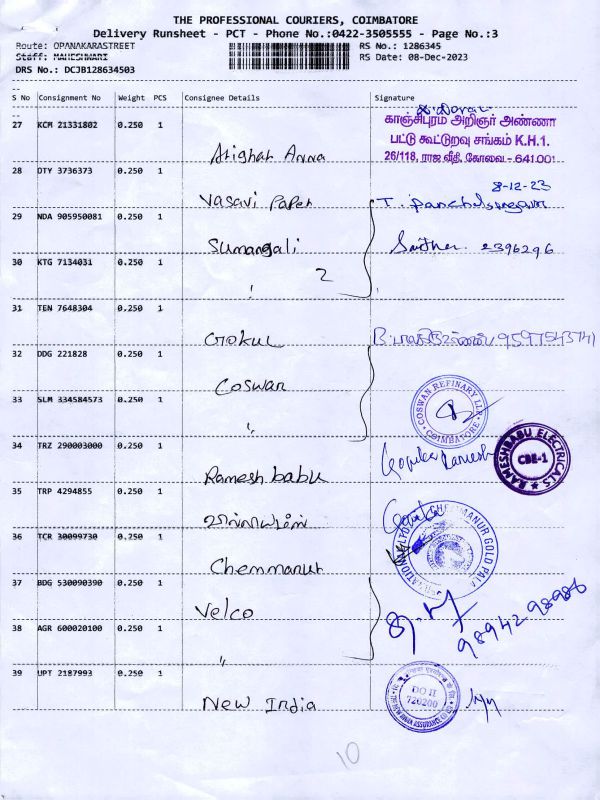 THE PROFESSIONAL COURIERS, COIMBATORE
Delivery Runsheet - PCT - Phone No.:0422-3505555 - Page No.:3
Route: OPANAKARASTREET RS No.: 1286345
Staff: MAHESHWARI RS Date: 08-Dec-2023
DRS No.: DCJB128634503
S No Consignment No Weight PCS Consignee Details Signature
27 KCM 21331802 0.250 1
காஞ்சிபுரம் அறிஞர் அண்ணா
பட்டு கூட்டுறவு சங்கம் K.H.1.
26/118, ராஜ வீதி, கோவை - 641 001
Anna
28 DTY 3736373 0.250 1
8-12-23
Vasavi Paper T. Panchalingam
29 NDA 905950081 0.250 1
Sumangali 2396296
30 KTG 7134031 0.250 1
2
"
31 TEN 7648304 0.250 1
Gokul 9597543741
32 DDG 221828 0.250 1
Coswan
33 SLM 334584573 0.250 1
COSWAN REFINARY LLP
COIMBATORE
"
34 TRZ 290003000 0.250 1
Ramesh babu Gopika Ramesh
RAMESHBABU ELECTRICALS
CBE-1
35 TRP 4294855 0.250 1
Gopika
36 TCR 30099730 0.250 1
Chemmanur
CHEMMANUR GOLD
37 BDG 530090390 0.250 1
Velco
9894298986
38 AGR 600020100 0.250 1
"
39 UPT 2187993 0.250 1
New India
DO II
720200
10